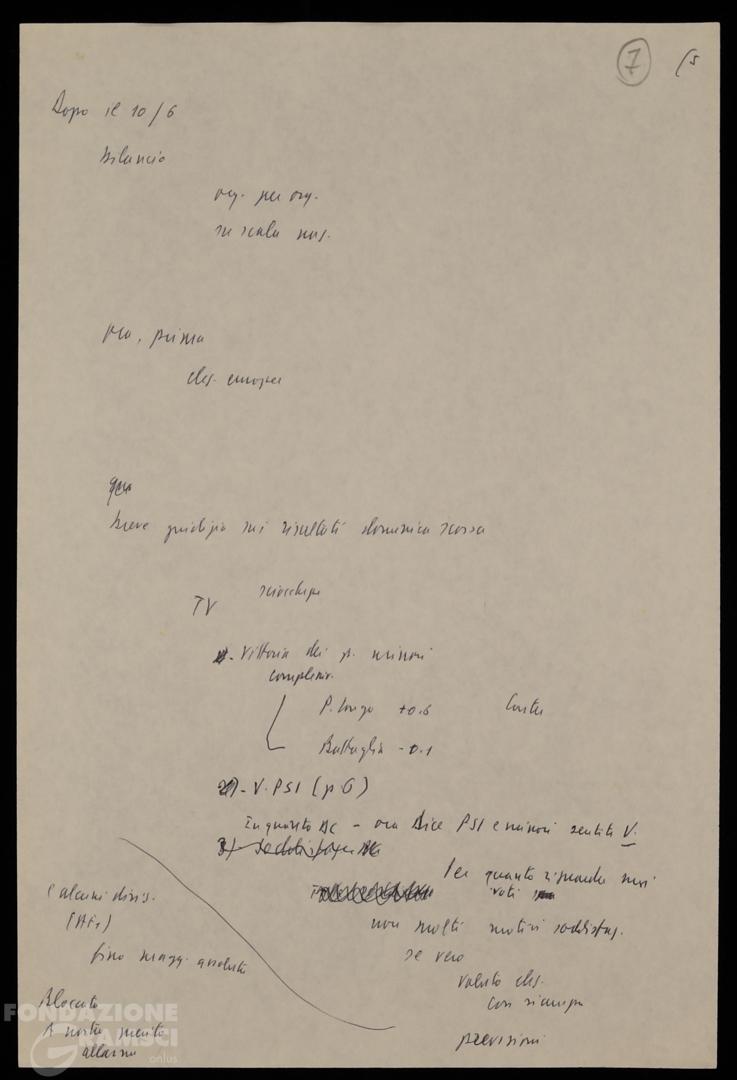 7 /5
Dopo il 10/6
Bilancio
org. per org.
su scala naz.
ora, prima
elez. europee
Breve giudizio sui risultati domenica scorsa
TV sciocchezze
- Vittoria dei p. minori
compless.
P. Longo +0.6 Costa
Battaglia - 0.1
2) - V. PSI (p. 6)
In quanto DC - ora dice PSI e minori sentite V.
3) Soddisfaz. DC
Per quanto riguarda suoi
voti
non molti motivi soddisfaz.
se vero
valuto elez.
con
previsioni
E alcuni dirig.
fino magg. assoluta
Bloccata
A nostro merito
allarme
FONDAZIONE
GRAMSCI
onlus